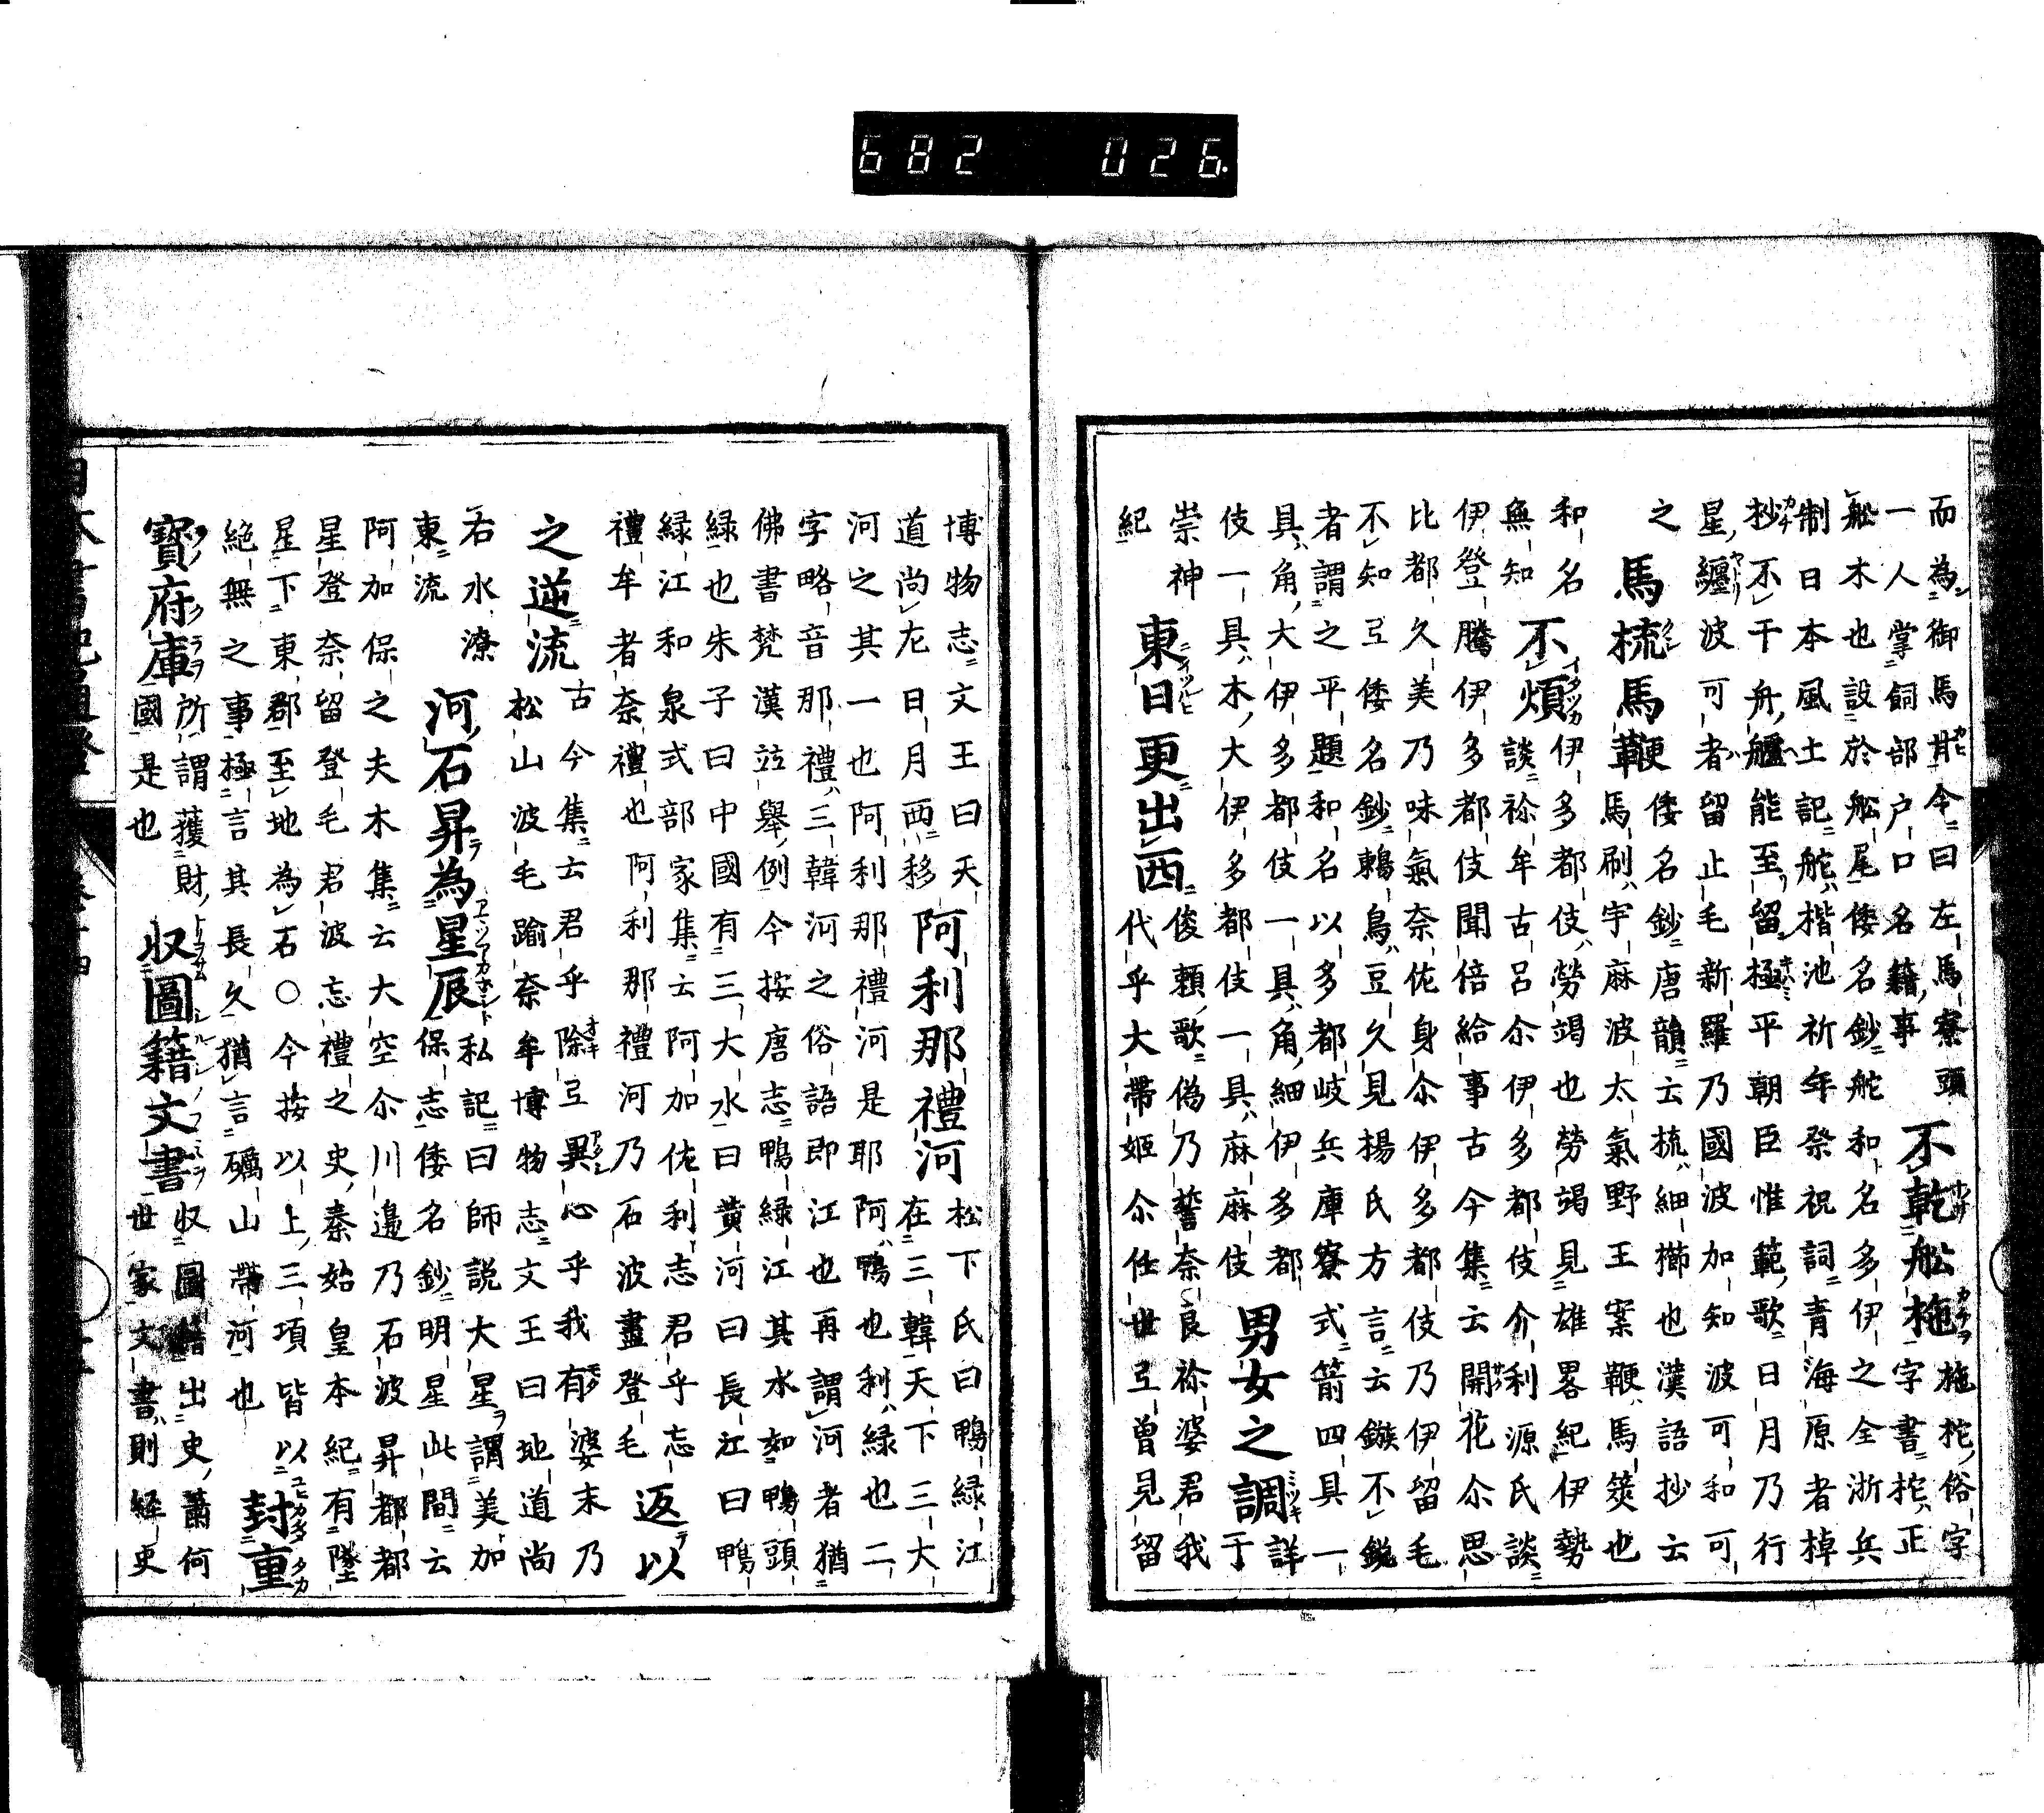 而為御馬甘今曰左馬寮頭
一人掌飼部户口名籍事
不乾舩柂
柂柁俗字
字書柁正
舩木也設於舩尾倭名鈔舵和名多伊之全浙兵
制日本風土記舵楷池祈年祭祝詞青海原者棹
抄不干舟艫能至留極平朝臣惟範歌日月乃行
星纏波可者留止毛新羅乃國波加知波可和可
之
馬梳馬鞭
倭名鈔唐韻云梳細櫛也漢語抄云
馬刷宇麻波太氣野王案鞭馬筴也
和名
無知
不煩
伊多都伎勞竭也勞竭見雄畧紀伊勢
談祢牟古呂尒伊多都伎介利源氏談
伊登騰伊多都伎聞倍給事古今集云開花尒思
比都久美乃味氣奈佐身尒伊多都伎乃伊留毛
不知弖倭名鈔鶇鳥豆久見楊氏方言云鏃不鋭
者謂之平題和名以多都岐兵庫寮式箭四具一
具角大伊多都伎一具角細伊多都
伎一具木大伊多都伎一具麻麻伎
男女之調
詳
于
崇神
紀
東日更出西
俊頼歌偽乃誓奈良祢婆君我
代乎大帶姬尒任世弖曾見留
博物志文王曰天
道尚尢日月西移
阿利那禮河
松下氏曰鴨緑江
在三韓天下三大
河之其一也阿利那禮河是耶阿鴨也利緑也二
字略音那禮三韓河之俗語即江也再謂河者猶
佛書梵漢竝舉例今按唐志鴨緑江其水如鴨頭
緑也朱子曰中國有三大水曰黄河曰長江曰鴨
緑江和泉式部家集云阿加佐利志君乎志
禮牟者奈禮也阿利那禮河乃石波盡登毛
返以
之逆流
古今集云君乎除弖異心乎我有婆末乃
松山波毛踰奈牟博物志文王曰地道尚
右水潦
東流
河石昇為星辰
私記曰師説大星謂美加
保志倭名鈔明星此間云
阿加保之夫木集云大空尒川邉乃石波昇都都
星登奈留登毛君波忘禮之史秦始皇本紀有墜
星下東郡至地為石○今按以上三項皆以
絶無之事極言其長久猶言礪山帶河也
封重
寶府庫
所謂獲財
國是也
収圖籍文書
収圖籍出史蕭何
世家文書則経史
682 026.